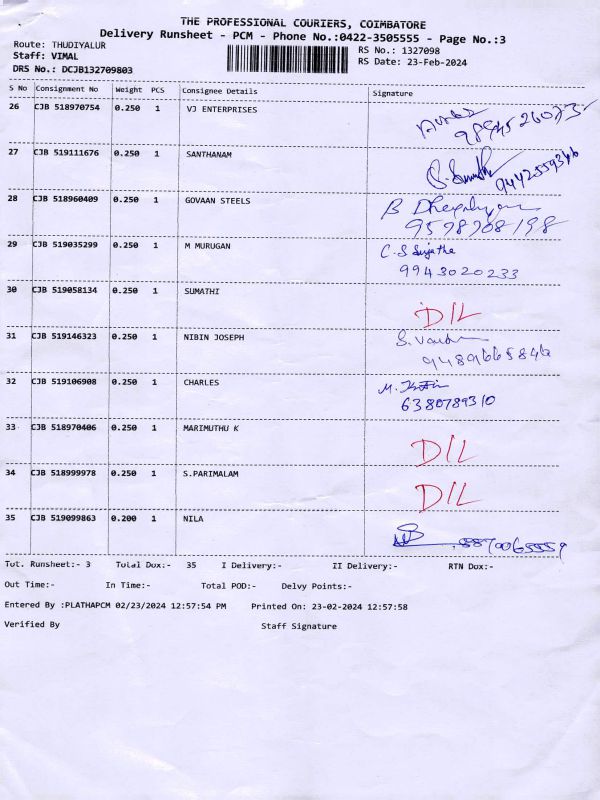 THE PROFESSIONAL COURIERS, COIMBATORE
Delivery Runsheet - PCM - Phone No.:0422-3505555 - Page No.:3
Route: THUDIYALUR
RS No.: 1327098
Staff: VIMAL
RS Date: 23-Feb-2024
DRS No.: DCJB132709803
S No Consignment No Weight PCS Consignee Details Signature
26 CJB 518970754 0.250 1 VJ ENTERPRISES
27 CJB 519111676 0.250 1 SANTHANAM
9442559366
28 CJB 518960409 0.250 1 GOVAAN STEELS
9578708198
29 CJB 519035299 0.250 1 M MURUGAN C.S Sujatha
9943020233
30 CJB 519058134 0.250 1 SUMATHI D/L
31 CJB 519146323 0.250 1 NIBIN JOSEPH
9489665846
32 CJB 519106908 0.250 1 CHARLES
6380789310
33 CJB 518970406 0.250 1 MARIMUTHU K D/L
34 CJB 518999978 0.250 1 S.PARIMALAM D/L
35 CJB 519099863 0.200 1 NILA
Tot. Runsheet:- 3 Total Dox:- 35 I Delivery:- II Delivery:- RTN Dox:-
Out Time:- In Time:- Total POD:- Delvy Points:-
Entered By :PLATHAPCM 02/23/2024 12:57:54 PM Printed On: 23-02-2024 12:57:58
Verified By Staff Signature